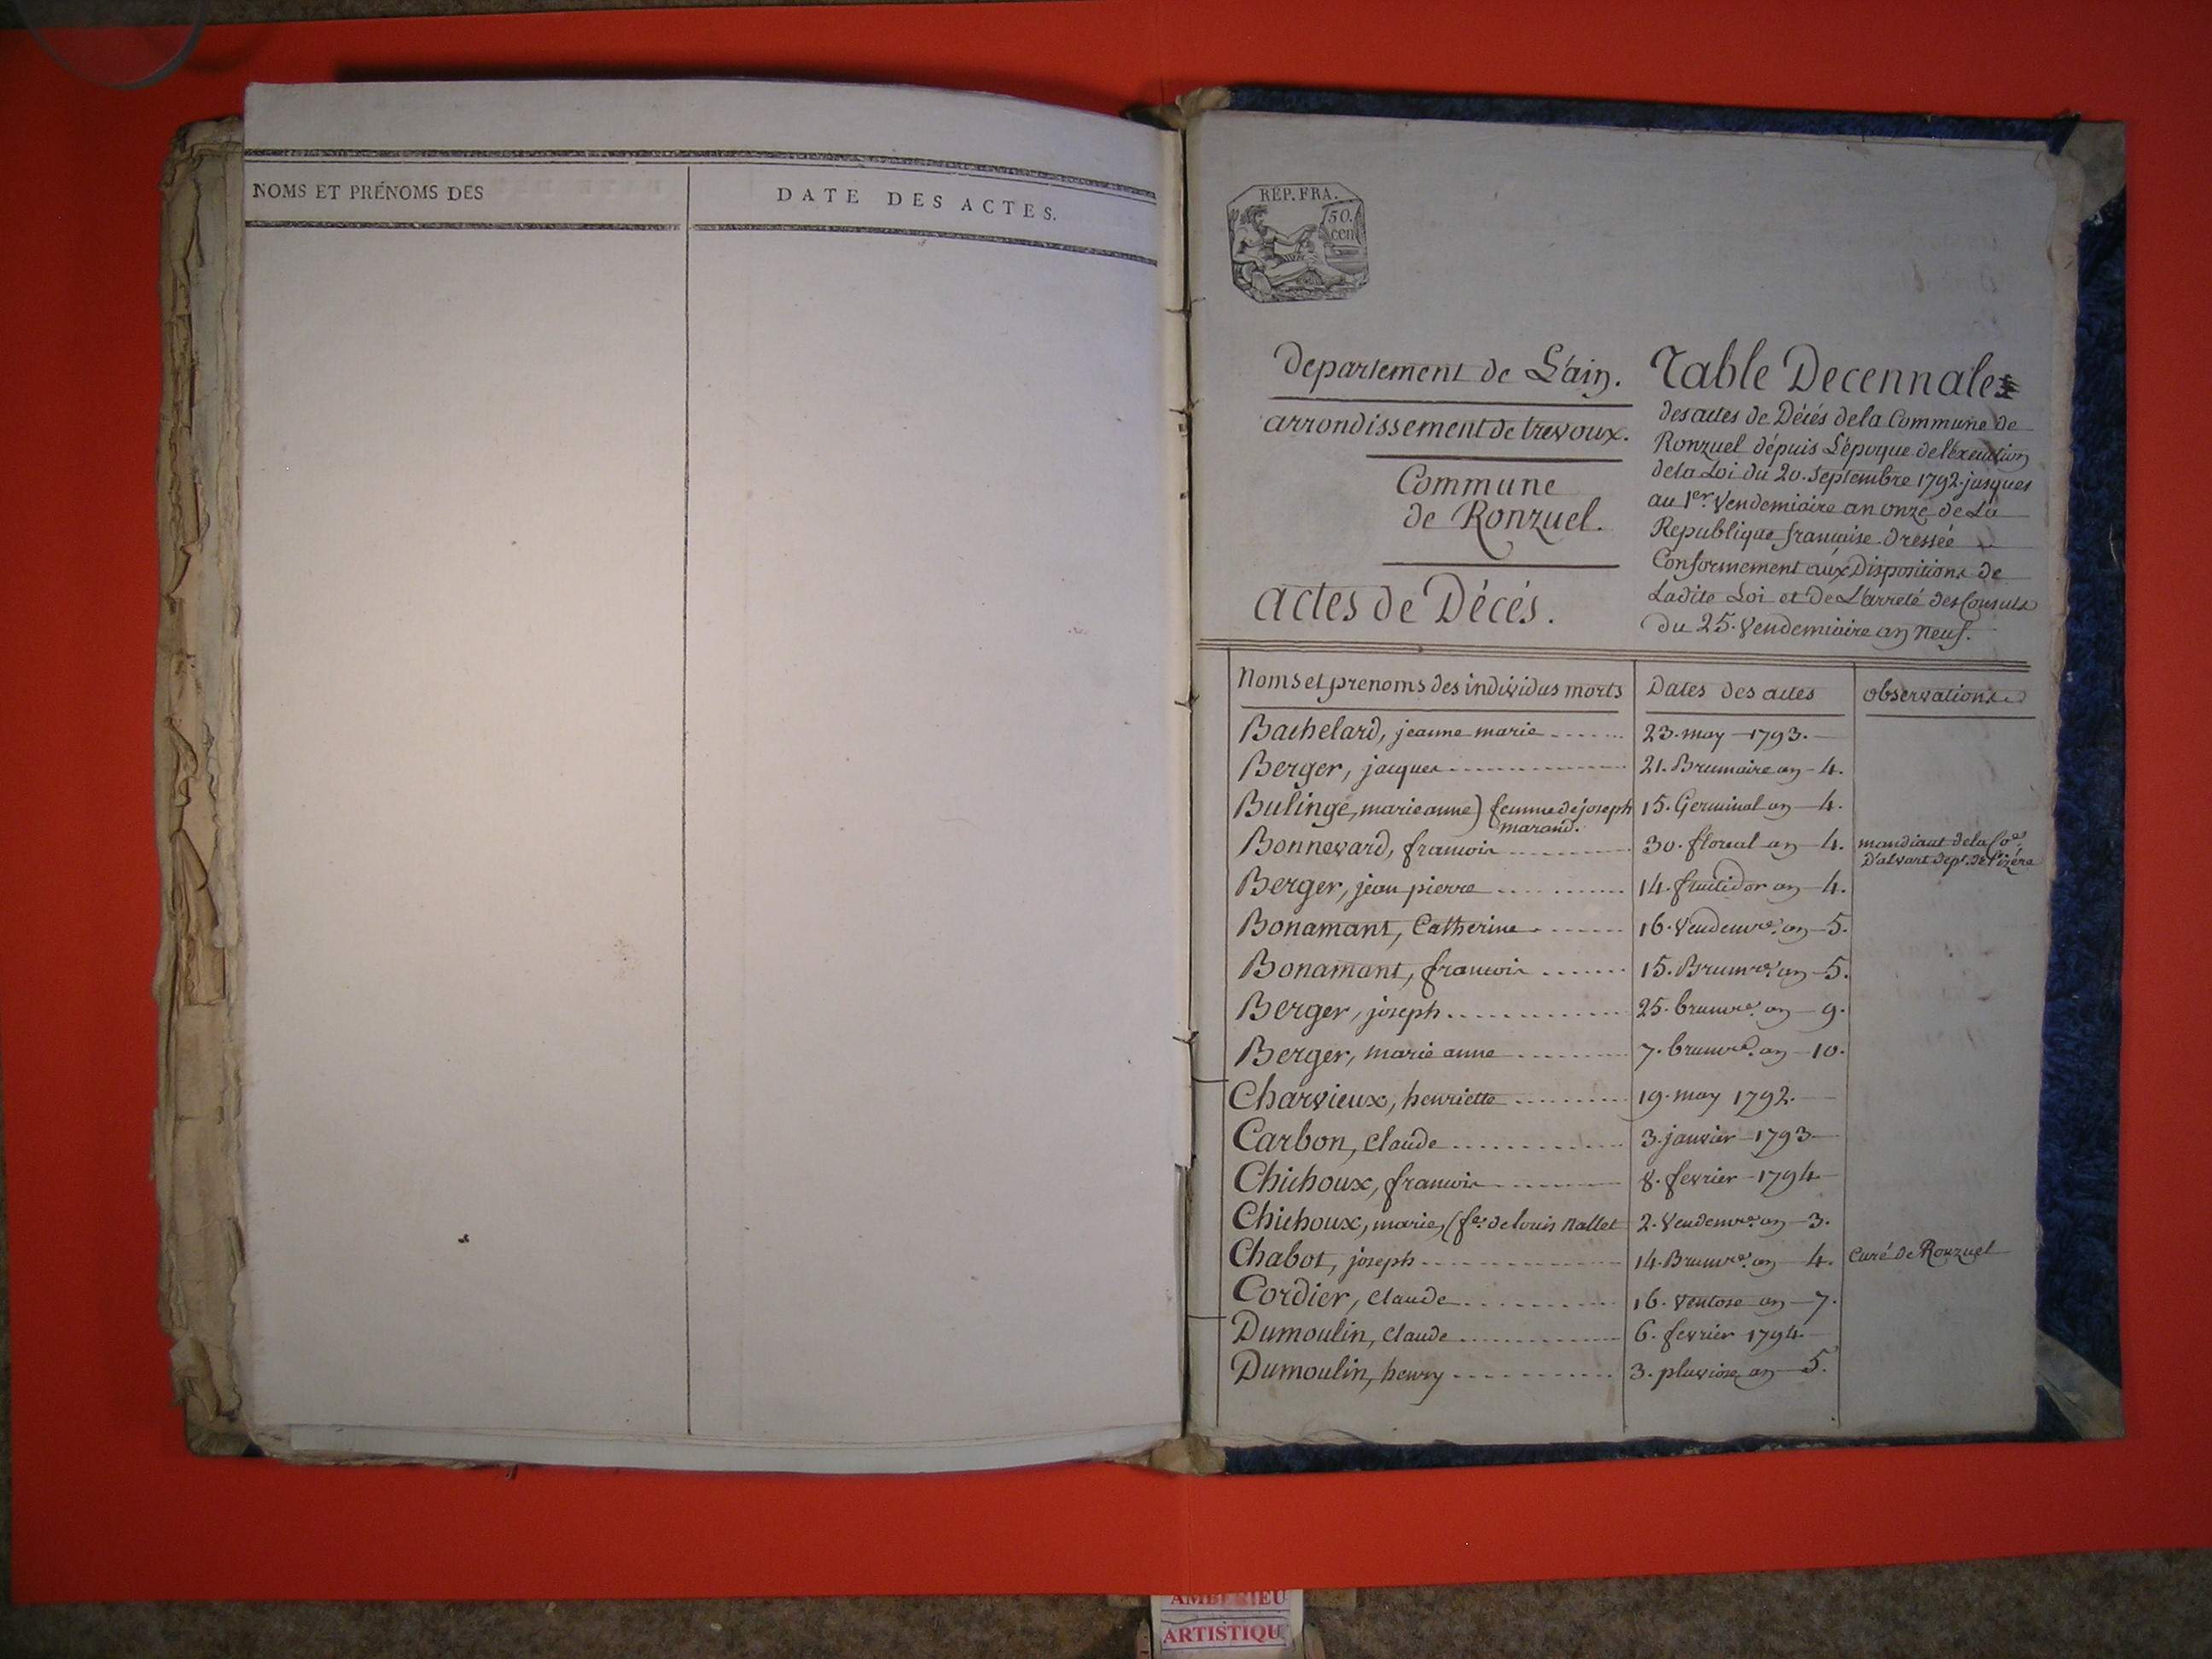 NOMS ET PRÉNOMS DES
DATE DES ACTES.
RÉP. FRA.
50.
cen
Departement de L'ain.
arrondissement de trevoux.
Commune
de Ronzuel.
actes de Décés.
Table Decennale
des actes de Décés de la Commune de
Ronzuel dépuis L'époque de l'exeution
de la Loi du 20. Septembre 1792. jusques
au 1er. Vendemiaire an onze de La
Republique francaise. Dressée
Conformement aux Dispositions de
Ladite Loi et de L'arreté des Consuls
du 25. Vendemiaire an Neuf.
Noms et prenoms des individus morts | Dates des actes | observations
Bachelard, jeanne marie ....... 23. may - 1793. -
Berger, jacques ............... 21. Brumaire an - 4.
Bulinge, marie anne) femme de joseph 15. Germinal an - 4.
marand.
Bonnevard, francois ........... 30. floreal an - 4. mandiant de la Coe.
D'alvart dept. de l'izére
Berger, jean pierre ........... 14. fructidor an - 4.
Bonamant, Catherine ....... 16. Vendemre. an - 5.
Bonamant, francois ....... 15. Brumre. an - 5.
Berger, joseph ............. 25. brumre. an - 9.
Berger, marie anne ......... 7. brumre. an - 10.
Charvieux, henriette .......... 19. may 1792. -
Carbon, Claude .............. 3. janvier - 1793 -
Chichoux, francois .......... 8. fevrier - 1794 -
Chichoux, marie, (fe. de louis Nallet 2. Vendemre. an - 3.
Chabot, joseph .............. 14. Brumre. an - 4. Curé de Ronzuel
Cordier, Claude ........... 16. Ventose an - 7.
Dumoulin, Claude ............ 6. fevrier 1794. -
Dumoulin, henry ........... 3. pluviose an - 5.
AMBERIEU
ARTISTIQU